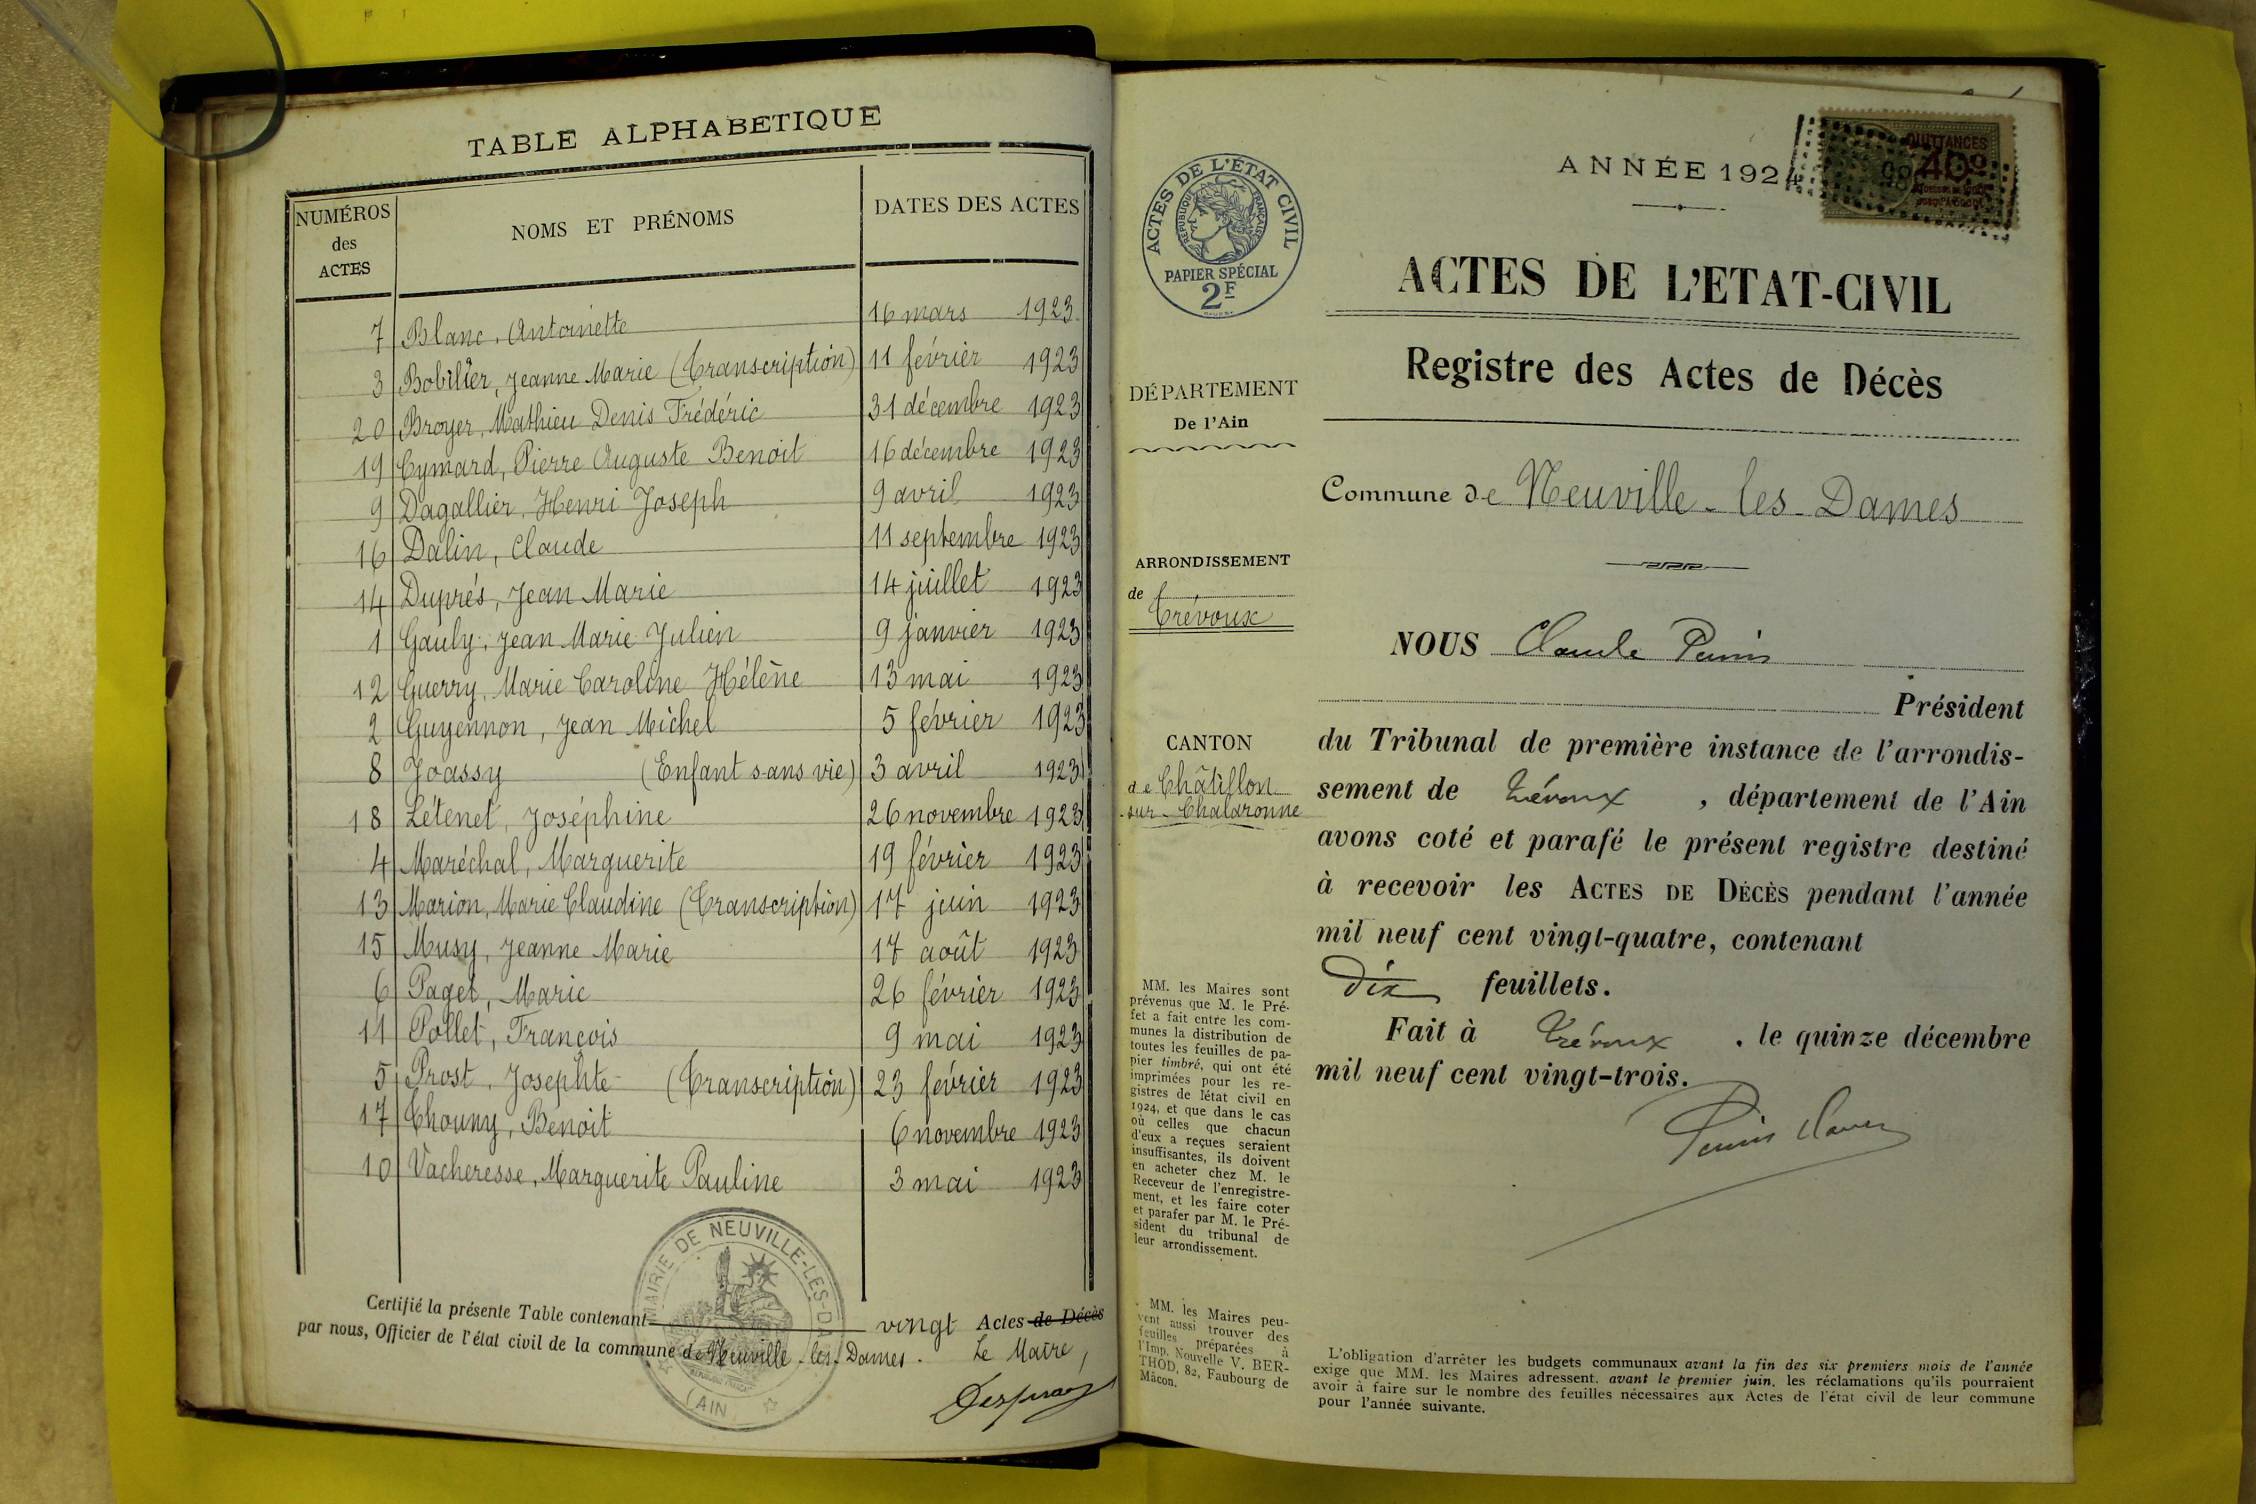 TABLE ALPHABETIQUE
NUMÉROS des ACTES NOMS ET PRÉNOMS DATES DES ACTES
7 Blanc, Antoinette 16 mars 1923
3 Bobilier, Jeanne Marie (Transcription) 11 février 1923
20 Broyer, Mathieu Denis Frédéric 31 décembre 1923
19 Cymard, Pierre Auguste Benoit 16 décembre 1923
9 Dagallier, Henri Joseph 9 avril 1923
16 Dalin, Claude 11 septembre 1923
14 Duprés, Jean Marie 14 juillet 1923
1 Gauly, Jean Marie Julien 9 janvier 1923
12 Guerry, Marie Caroline Hélène 13 mai 1923
2 Guyennon, Jean Michel 5 février 1923
8 Joassy (Enfant sans vie) 3 avril 1923
18 Létenet, Joséphine 26 novembre 1923
4 Maréchal, Marguerite 19 février 1923
13 Marion, Marie Claudine (Transcription) 17 juin 1923
15 Musy, Jeanne Marie 17 août 1923
6 Paget, Marie 26 février 1923
11 Pollet, François 9 mai 1923
5 Prost, Josephte (Transcription) 23 février 1923
17 Thouny, Benoit 6 novembre 1923
10 Vacheresse, Marguerite Pauline 3 mai 1923
MAIRIE DE NEUVILLE-LES-DA
(AIN)
Certifié la présente Table contenant vingt Actes de Décès
par nous, Officier de l'état civil de la commune de Neuville-les-Dames. Le Maire,
ANNÉE 1924
QUITTANCES
ACTES DE L'ÉTAT CIVIL
RÉPUBLIQUE FRANÇAISE
PAPIER SPÉCIAL
2F
ACTES DE L'ETAT-CIVIL
Registre des Actes de Décès
DÉPARTEMENT
De l'Ain
Commune de Neuville-les-Dames
ARRONDISSEMENT
de Trévoux
NOUS Claude
Président
CANTON
de Châtillon
sur-Chalaronne
du Tribunal de première instance de l'arrondis-
sement de Trévoux , département de l'Ain
avons coté et parafé le présent registre destiné
à recevoir les ACTES DE DÉCÈS pendant l'année
mil neuf cent vingt-quatre, contenant
Dix feuillets.
Fait à Trévoux , le quinze décembre
mil neuf cent vingt-trois.
MM. les Maires sont
prévenus que M. le Pré-
fet a fait entre les com-
munes la distribution de
toutes les feuilles de pa-
pier timbré, qui ont été
imprimées pour les re-
gistres de l'état civil en
1924, et que dans le cas
où celles que chacun
d'eux a reçues seraient
insuffisantes, ils doivent
en acheter chez M. le
Receveur de l'enregistre-
ment, et les faire coter
et parafer par M. le Pré-
sident du tribunal de
leur arrondissement.
MM. les Maires peu-
vent aussi trouver des
feuilles préparées à
l'Imp. Nouvelle V. BER-
THOD, 82, Faubourg de
Mâcon.
L'obligation d'arrêter les budgets communaux avant la fin des six premiers mois de l'année
exige que MM. les Maires adressent, avant le premier juin, les réclamations qu'ils pourraient
avoir à faire sur le nombre des feuilles nécessaires aux Actes de l'état civil de leur commune
pour l'année suivante.